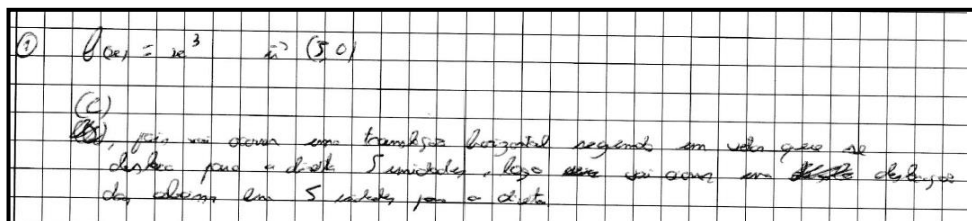 ① f(x) = x³ u⃗ (5,0)
(C)
, pois vai ocorrer uma translação horizontal segundo um vetor que se
desloca para a direita 5 unidades, logo vai ocorrer um deslocamento
das abcissas em 5 unidades para a direita